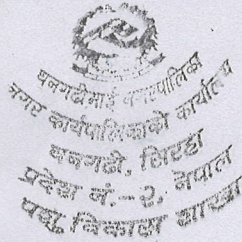 धनगढीमाई नगरपालिका
नगर कार्यपालिकाको कार्यालय
धनगढी, सिरहा
प्रदेश नं.-२, नेपाल
पशु विकास शाखा